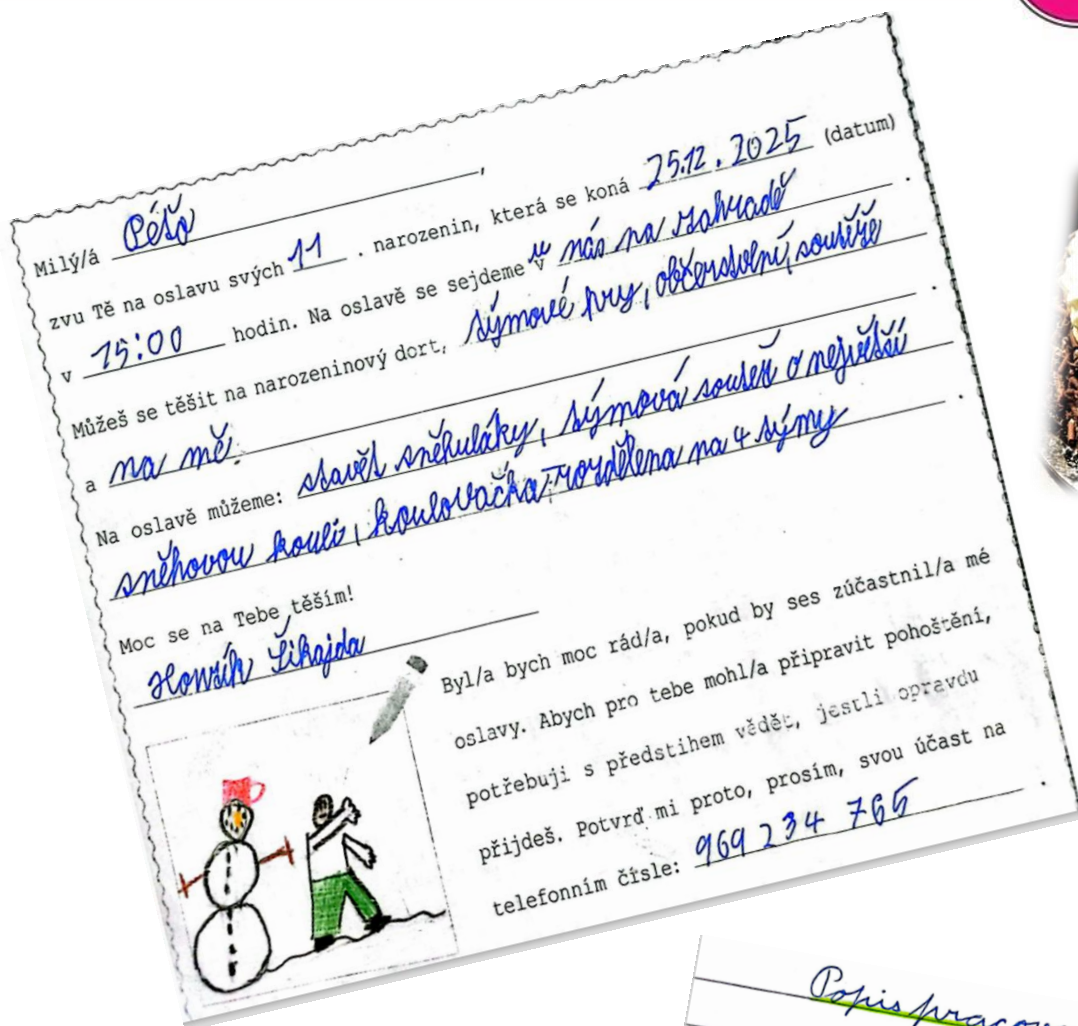 Milý/á Péťo,
zvu Tě na oslavu svých 11. narozenin, která se koná 25.12.2025 (datum)
v 15:00 hodin. Na oslavě se sejdeme v u nás na zahradě.
Můžeš se těšit na narozeninový dort, týmové hry, občerstvení, soutěže
a na mě.
Na oslavě můžeme: stavět sněhuláky, týmová soutěž o největší
sněhovou kouli, koulovačka rozdělena na 4 týmy.
Moc se na Tebe těším!
Honzík Šikajda
Byl/a bych moc rád/a, pokud by ses zúčastnil/a mé
oslavy. Abych pro tebe mohl/a připravit pohoštění,
potřebuji s předstihem vědět, jestli opravdu
přijdeš. Potvrď mi proto, prosím, svou účast na
telefonním čísle: 969 234 765.
Popis